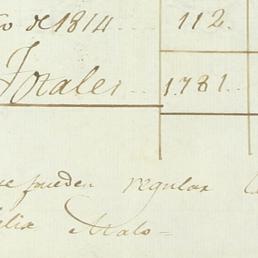 o de 1814... 112.
Totales.. 1.781..
se pueden regular
Malo=